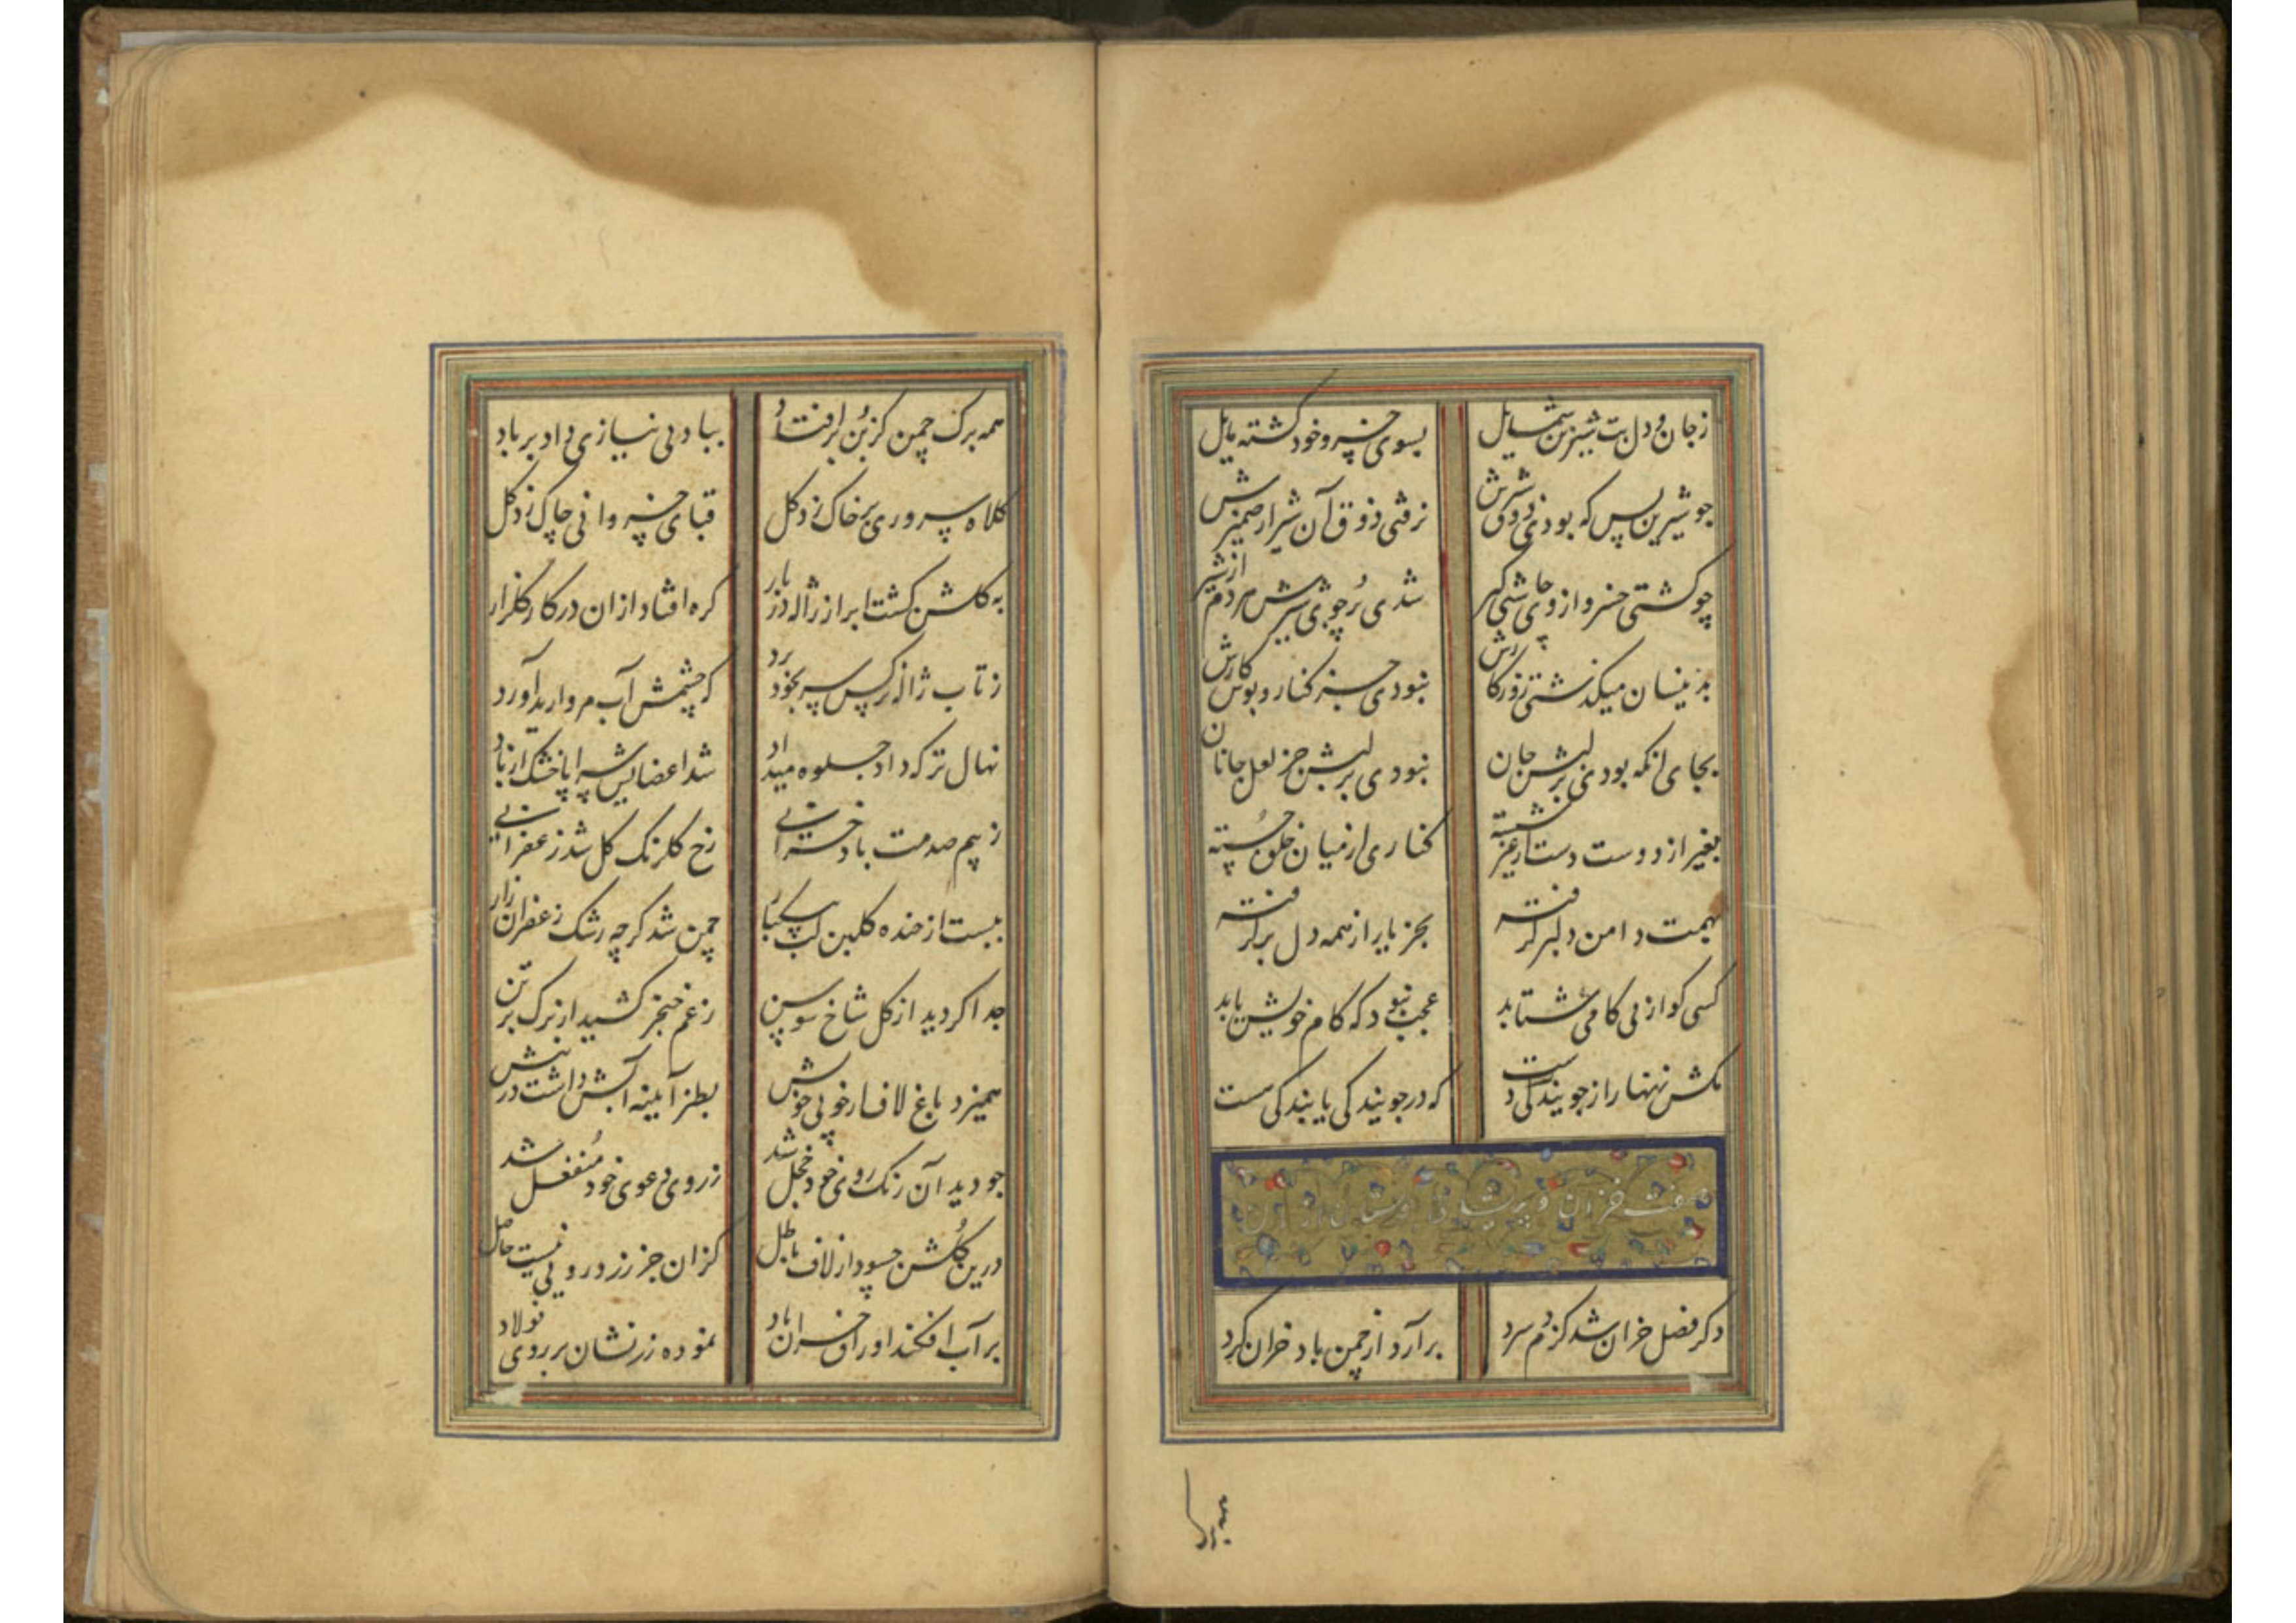 زجان و دل بت شیرین شمایل بسوی خسرو خود کشته مایل
جو شیرین پس که بودی ذوق شیرش نرفتی ذوق آن شیر از ضمیرش
چو کشتی خسرو از وی جاشنی کیر شدی پر جوی شیرش هر دم از شیر
بدینسان میکذشتی روزکارش نبودی جز کنار و بوس کارش
بجای انکه بودی بر لبش جان نبودی بر لبش جز لعل جانان
بغیر از دوست دست از غیر شسته کناری از میان خلق جسته
بهمت دامن دلبر کرفته بجز یار از همه دل بر کرفته
کسی کو از پی کامی شتابد عجب نبود که کام خویش یابد
مکش زنهار از جویندکی دست که در جویندکی یابندکی هست
صفت خزان و پریشانی
دکر فصل خزان شد کز دم سرد برآرد از چمن باد خزان کرد
همه برک
همه برک چمن کز بن برافتاد بباد بی نیازی داد بر باد
کلاه سروری بر خاک زد کل قبای خسروانی چاک زد کل
به کلشن کشت ابر از ژاله دربار کره افتاد ازان در کار کلزار
ز تاب ژاله نرکس سر بخود برد که چشمش آب مروارید آورد
نهال تر که داد جلوه میداد شد اعضایش سراپا خشک از باد
ز بیم صدمت باد خزانی رخ کلرنک کل شد زعفرانی
ببست از خنده کلبن لب بیکبار چمن شد کرچه رشک زعفران زار
جدا کردید از کل شاخ سوسن ز غم خنجر کشید از برک بر تن
همیزد باغ لاف از خوبی خویش بطنز آیینه آبش داشت در پیش
جو دید آن رنک روی خود خجل شد ز روی دعوی خود منفعل شد
درین کلشن چسود از لاف باطل کزان جز زرد رویی نیست حاصل
بر آب افکند اوراق خزان باد نموده زرنشان بر روی فولاد